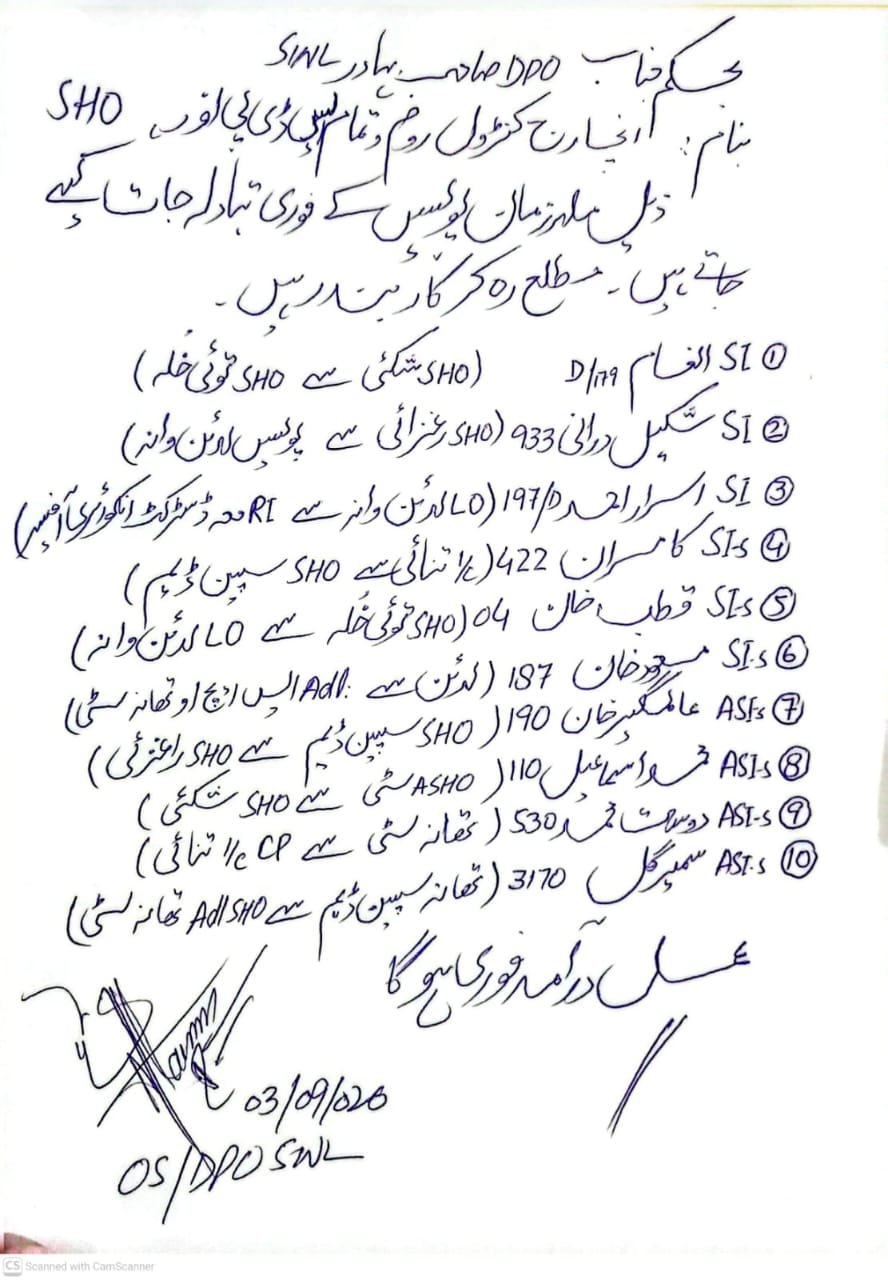 بحکم جناب DPO صاحب بہادر SWL
بنام: انچارج کنٹرول روم و تمام ایس ڈی پی اوز، SHO
ذیل ملازمان پولیس کے فوری تبادلہ جات کیے
جاتے ہیں۔ مطلع رہ کر کاربند رہیں۔
① SI انعام D/179 (SHO شکئی سے SHO توئی خلہ)
② SI شکیل درانی 933 (SHO رغزائی سے پولیس لائن وانہ)
③ SI اسرار احمد 197/D (LO لائن وانہ سے RI معہ ڈسٹرکٹ انکوائری آفیسر)
④ SI-s کامران 422 (I/c تنائی سے SHO سپین ڈیم)
⑤ SI-s قطب خان 04 (SHO توئی خلہ سے LO لائن وانہ)
⑥ SI-s مسعود خان 187 (لائن سے Adl: ایس ایچ او تھانہ سٹی)
⑦ ASI-s عالمگیر خان 190 (SHO سپین ڈیم سے SHO راغزئی)
⑧ ASI-s محمد اسماعیل 110 (ASHO سٹی سے SHO شکئی)
⑨ ASI-s دوست محمد 530 (تھانہ سٹی سے CP I/c تنائی)
⑩ ASI-s سمیر گل 3170 (تھانہ سپین ڈیم سے Adl SHO تھانہ سٹی)
عمل درآمد فوری ہو گا
03/09/020
OS/DPO SWL
CS Scanned with CamScanner